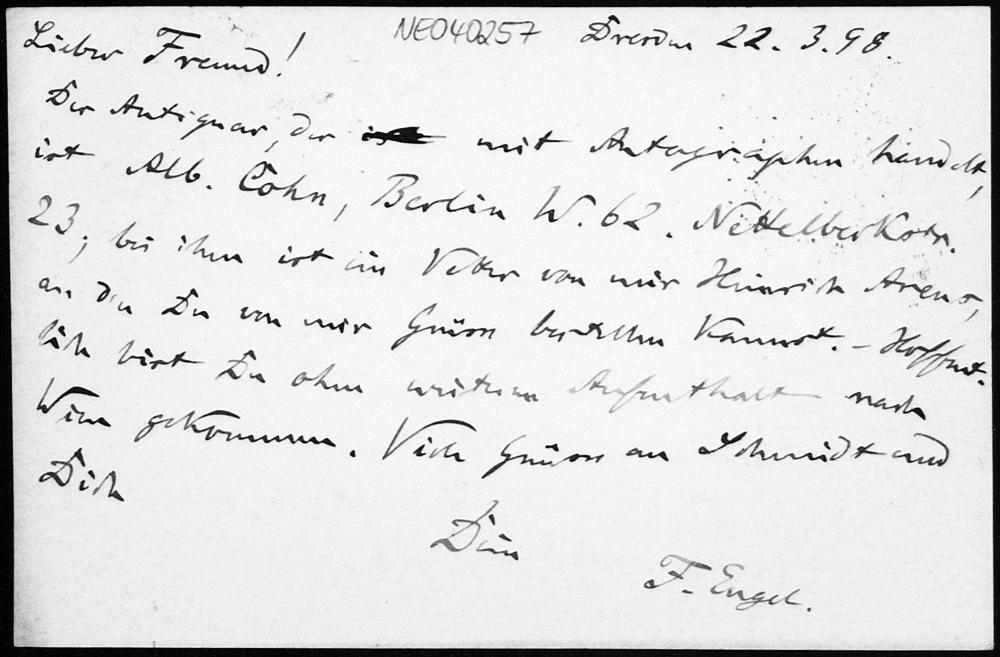 NE040257 Dresden 22. 3. 98.
Lieber Freund!
Der Antiquar, der mit Autographen handelt,
ist Alb. Cohn, Berlin W. 62. Nettelbeckstr.
23; bei ihm ist ein Vetter von mir Heinrich Arens,
an den Du von mir Grüsse bestellen kannst. – Hoffent-
lich bist Du ohne weiteren Aufenthalt nach
Wien gekommen. Viele Grüsse an Schmidt und
Dich
Dein
F. Engel.